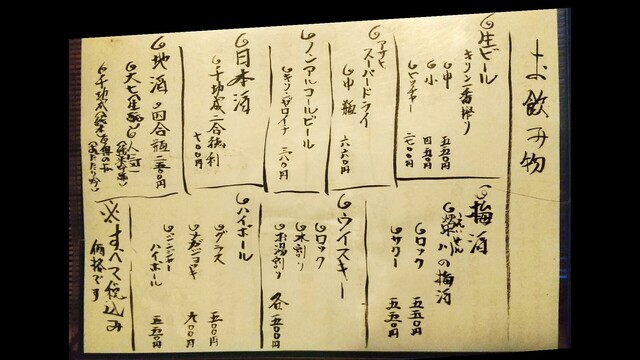 お飲み物
生ビール
キリン一番搾り
中 五五〇円
小 四五〇円
ピッチャー 二七〇〇円
アサヒ
スーパードライ
中瓶 六六〇円
ノンアルコールビール
キリンゼロイチ 三八〇円
日本酒
千功成二合徳利
七〇〇円
地酒 四合瓶 二五〇〇円
大七生酛
人気一
千功成
梅酒
榮川の梅酒
えいせん
ロック 五五〇円
サワー 五五〇円
ウイスキー
ロック
水割り
お湯割り 各五〇〇円
ハイボール
グラス 五〇〇円
メガジョッキ 九〇〇円
ジンジャー
ハイボール 五五〇円
※すべて税込み
価格です